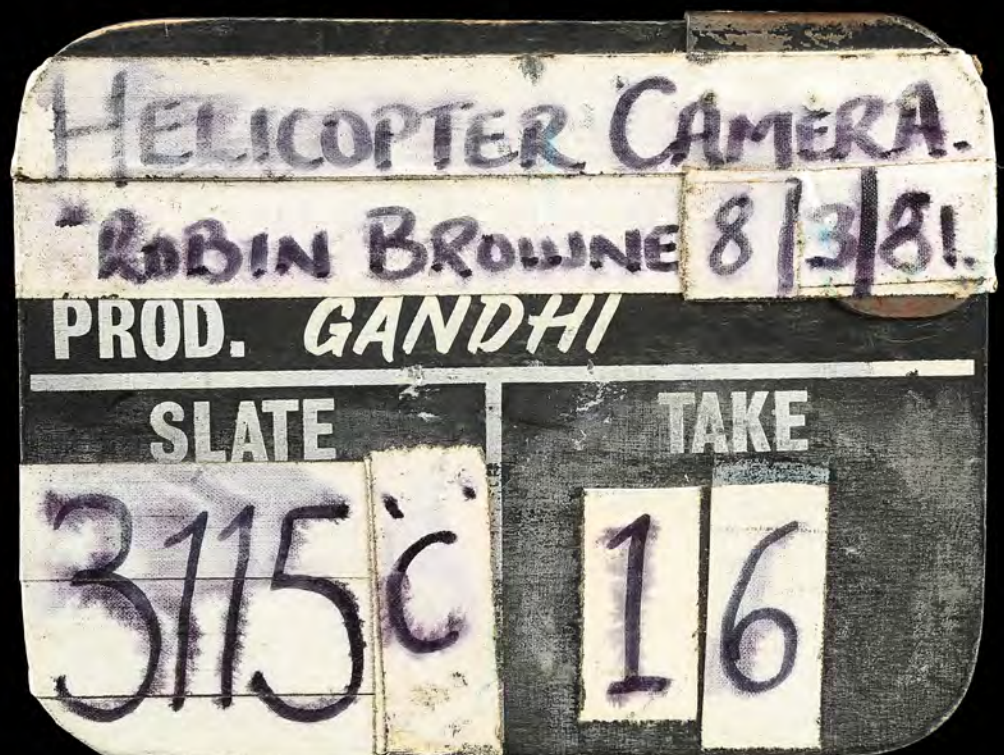 HELICOPTER CAMERA.
"ROBIN BROWNE 8/3/81.
PROD. GANDHI
SLATE TAKE
3115 "C" 16